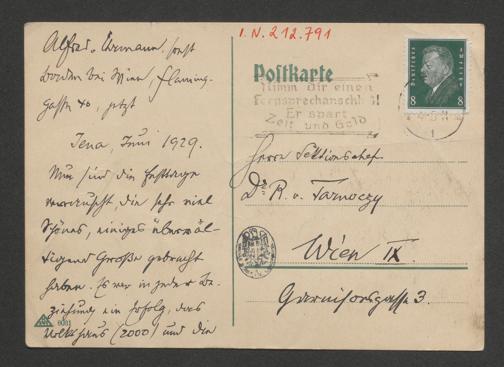 I.N. 212.791
Alfred v. Ehrmann, sonst
Baden bei Wien, Flamming-
gasse 40, jetzt
Jena, Juni 1929.
Nun sind die Festtage
verrauscht, die sehr viel
Schönes, einiges überwäl-
tigend Große gebracht
haben. Es war in jeder Be-
ziehung ein Erfolg, das
Volkshaus (2000) und die
6081
Postkarte
Nimm Dir einen
Fernsprechanschluß!
Er spart
Zeit und Geld
Deutsches Reich
8 8
Herrn Sektionschef
Dr. R. v. Tarnoczy
Wien IX.
Garnisongasse 3.